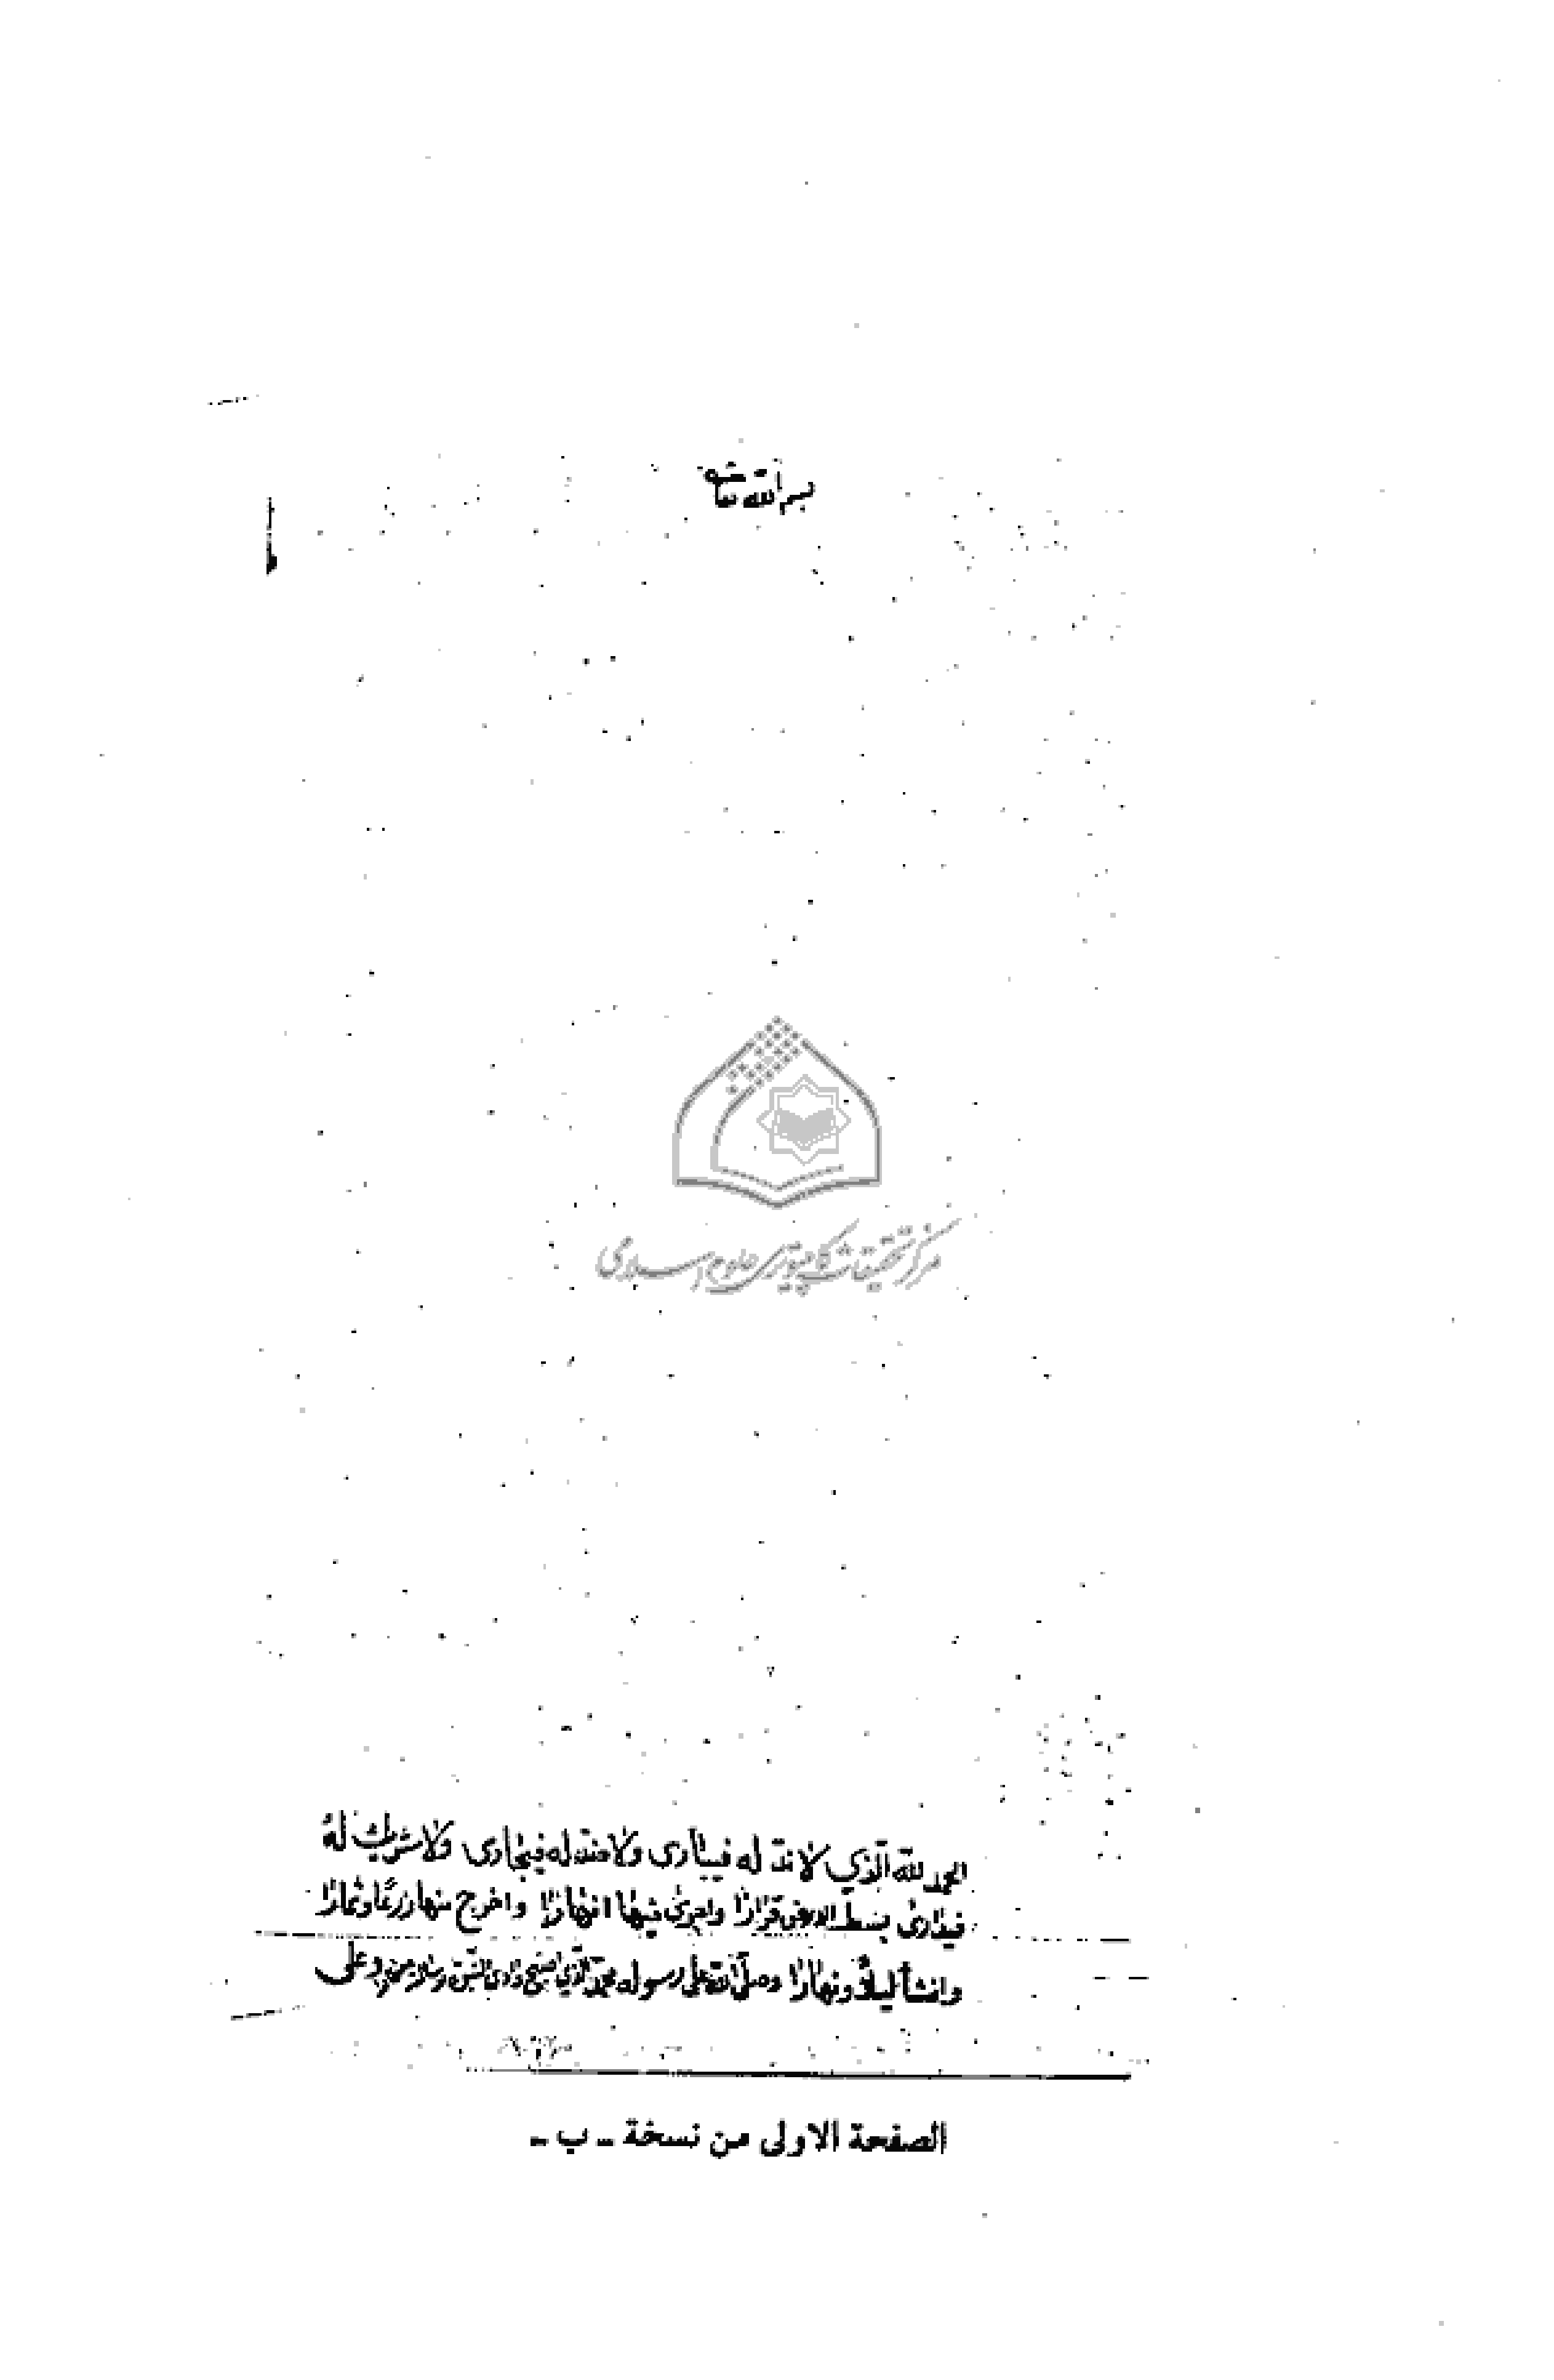 بسم الله
مركز تحقيقات كامپيوترى علوم اسلامى
الحمد لله الّذي لا ندّ له فيبارى ولا ضدّ له فيجارى ولا شريك له
فيدارى بسط الارض قرارًا واجرى فيها انهارًا واخرج منها زرعًا وثمارًا
وانشأ ليلاً ونهارًا وصلّى الله على رسوله محمّد الّذي وعلى
الصفحة الاولى من نسخة ـ ب ـ